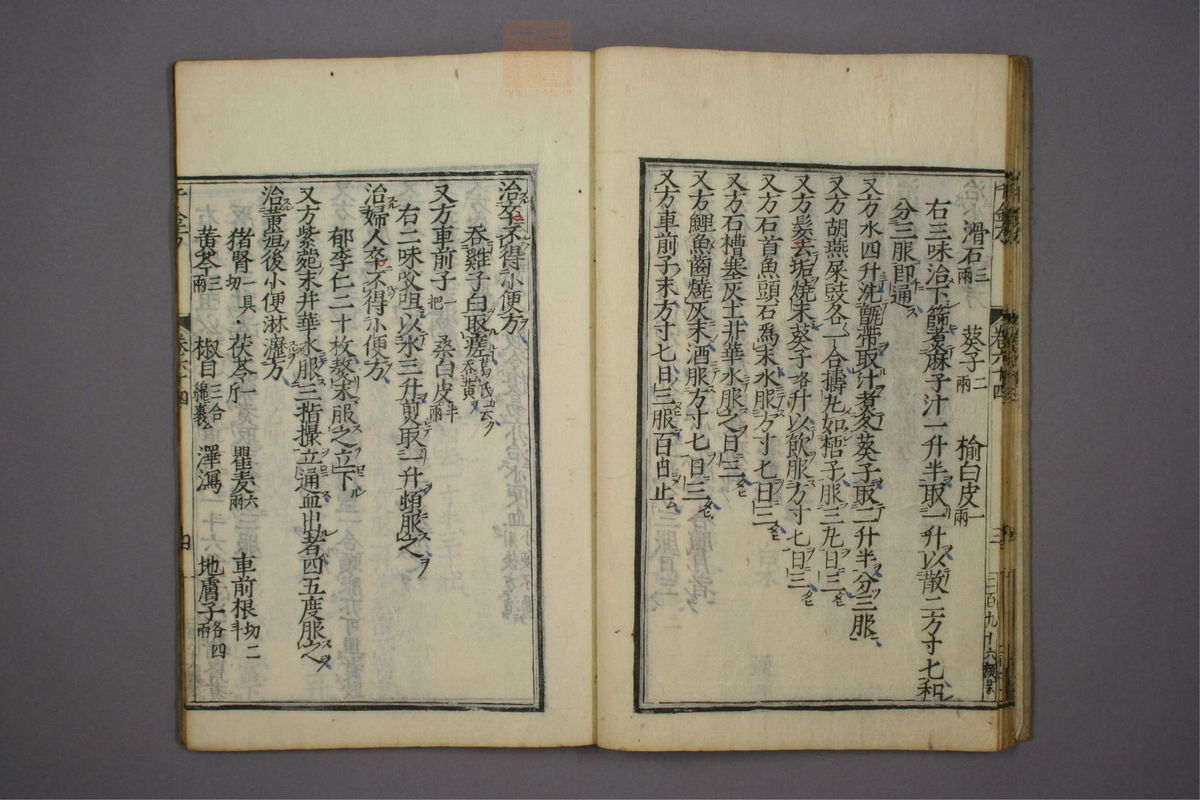 滑石三兩 葵子二兩 榆白皮一兩
右三味治下篩煮麻子汁一升半取一升以散二方寸匕和
分三服即通
又方水四升洗甑帶取汁煮葵子取二升半分三服
又方胡燕屎豉各一合擣丸如梧子服三丸日三
又方髮去垢燒末葵子各一升以飲服方寸匕日三
又方石首魚頭石為末水服方寸匕日三
又方鯉魚齒燒灰末酒服方寸匕日三
又方石槽塞灰土井華水服之日三
又方車前子末方寸匕日三服百日止
治卒不得小便方
吞雞子白取瘥葛氏云吞黃
又方車前子一把 桑白皮半兩
右二味㕮咀以水三升煎取一升頓服之
治婦人卒不得小便方
郁李仁二十枚熬末服之立下
又方紫菀末井華水服三指撮立通血出者四五度服之
治黃疸後小便淋瀝方
豬腎一具切 茯苓一斤 瞿麥六兩 車前根切二斗
黃芩三兩 椒目三合綿裹 澤瀉 地膚子各四兩